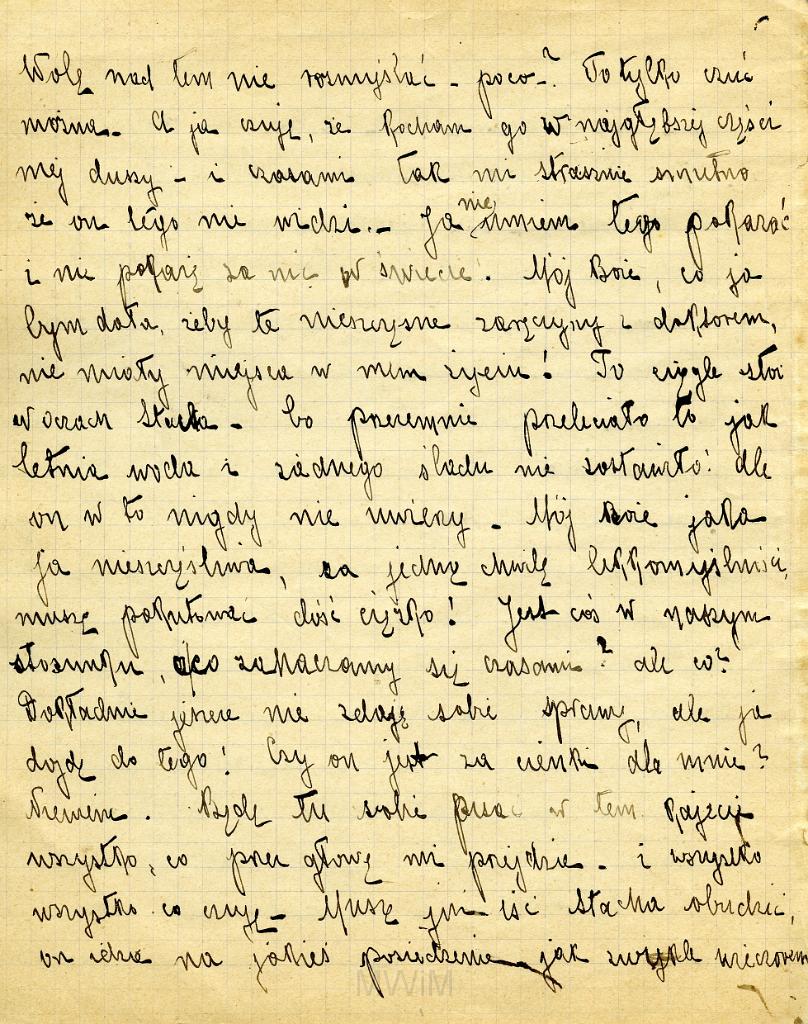 Wolę nad tem nie rozmyślać – poco–? To tylko czuć
można – A ja czuję, że kocham go w najgłębszej części
mej duszy – i czasami tak mi strasznie smutno
że on tego nie widzi. – Ja nie umiem tego pokazać
i nie pokażę za nic w świecie. Mój Boże, co ja
bym dała, żeby te nieszczęsne zaręczyny z doktorem,
nie miały miejsca w mem życiu! To ciągle stoi
w oczach Stacha – bo przezemnie przeleciało to jak
letnia woda i żadnego śladu nie zostawiło! ale
on w to nigdy nie uwierzy – Mój Boże jaka
ja nieszczęśliwa, za jedną chwilę lekkomyślności,
muszę pokutować dość ciężko! Jest coś w naszym
stosunku, o co zahaczamy się czasami? ale co?
Dokładnie jeszcze nie zdaję sobie sprawę, ale ja
dojdę do tego! Czy on jest za cienki dla mnie?
Niewiem. Będę tu sobie pisać w tem kajecie
wszystko, co przez głowę mi przejdzie – i wszystko
wszystko co czuję – Muszę już iść Stacha obudzić,
on idzie na jakieś posiedzenie – jak zwykle wieczorem
MWiM